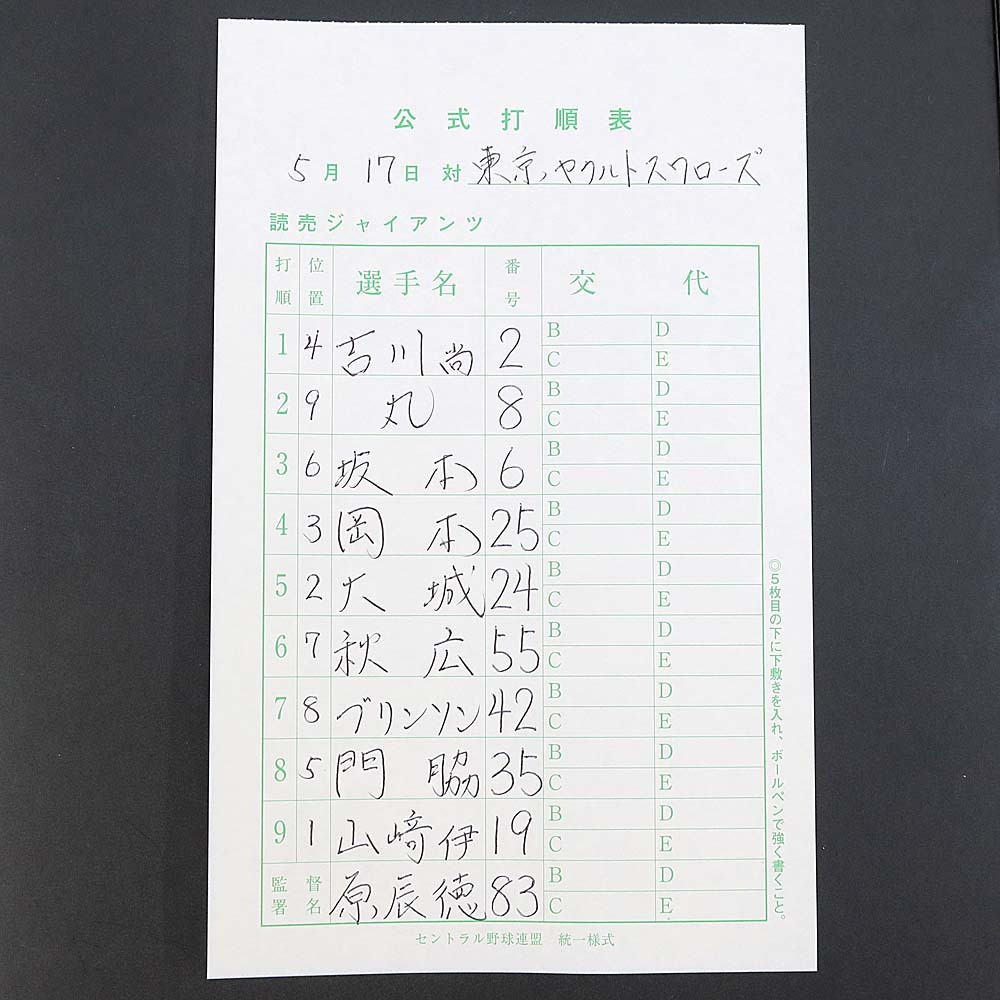 公式打順表
5月17日 対 東京ヤクルトスワローズ
読売ジャイアンツ
打順 位置 選手名 番号 交代
1 4 吉川尚 2 B D
C E
2 9 丸 8 B D
C E
3 6 坂本 6 B D
C E
4 3 岡本 25 B D
C E
5 2 大城 24 B D
C E
6 7 秋広 55 B D
C E
7 8 ブリンソン 42 B D
C E
8 5 門脇 35 B D
C E
9 1 山﨑伊 19 B D
C E
監督署名 原辰徳 83 B D
C E
◎5枚目の下に下敷きを入れ、ボールペンで強く書くこと。
セントラル野球連盟 統一様式